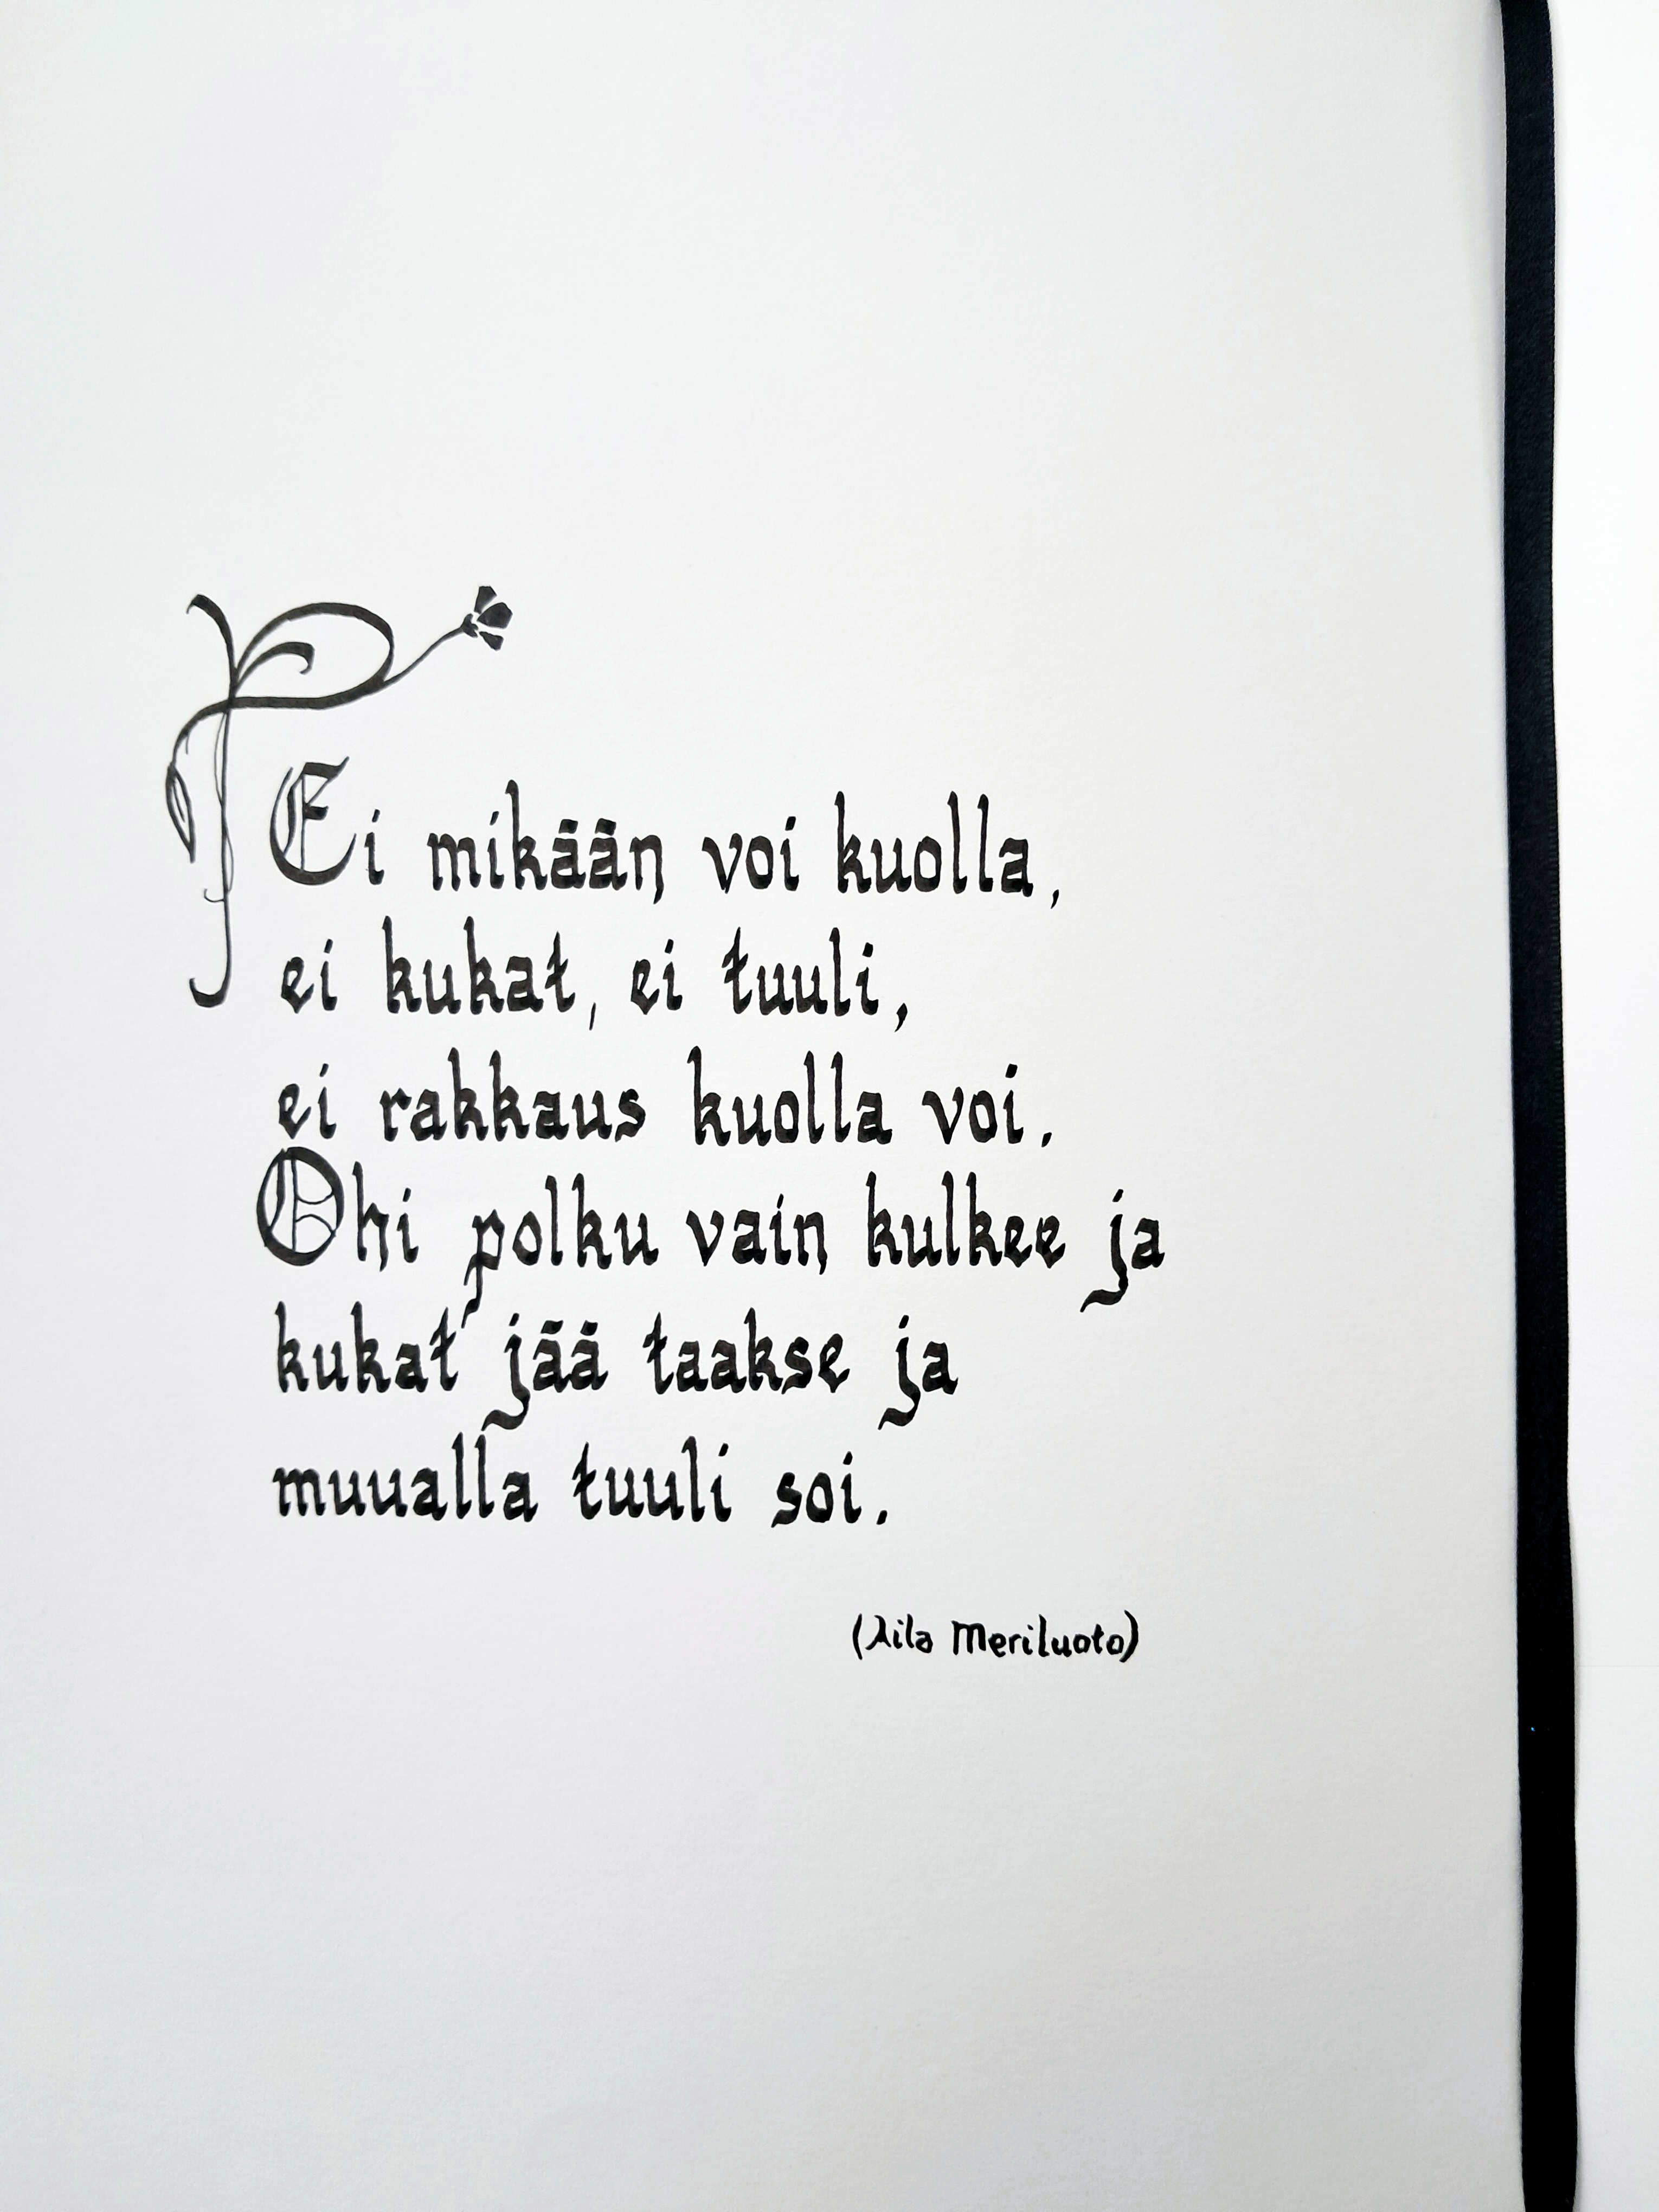 Ei mikään voi kuolla,
ei kukat, ei tuuli,
ei rakkaus kuolla voi.
Ohi polku vain kulkee ja
kukat jää taakse ja
muualla tuuli soi.
(Aila Meriluoto)